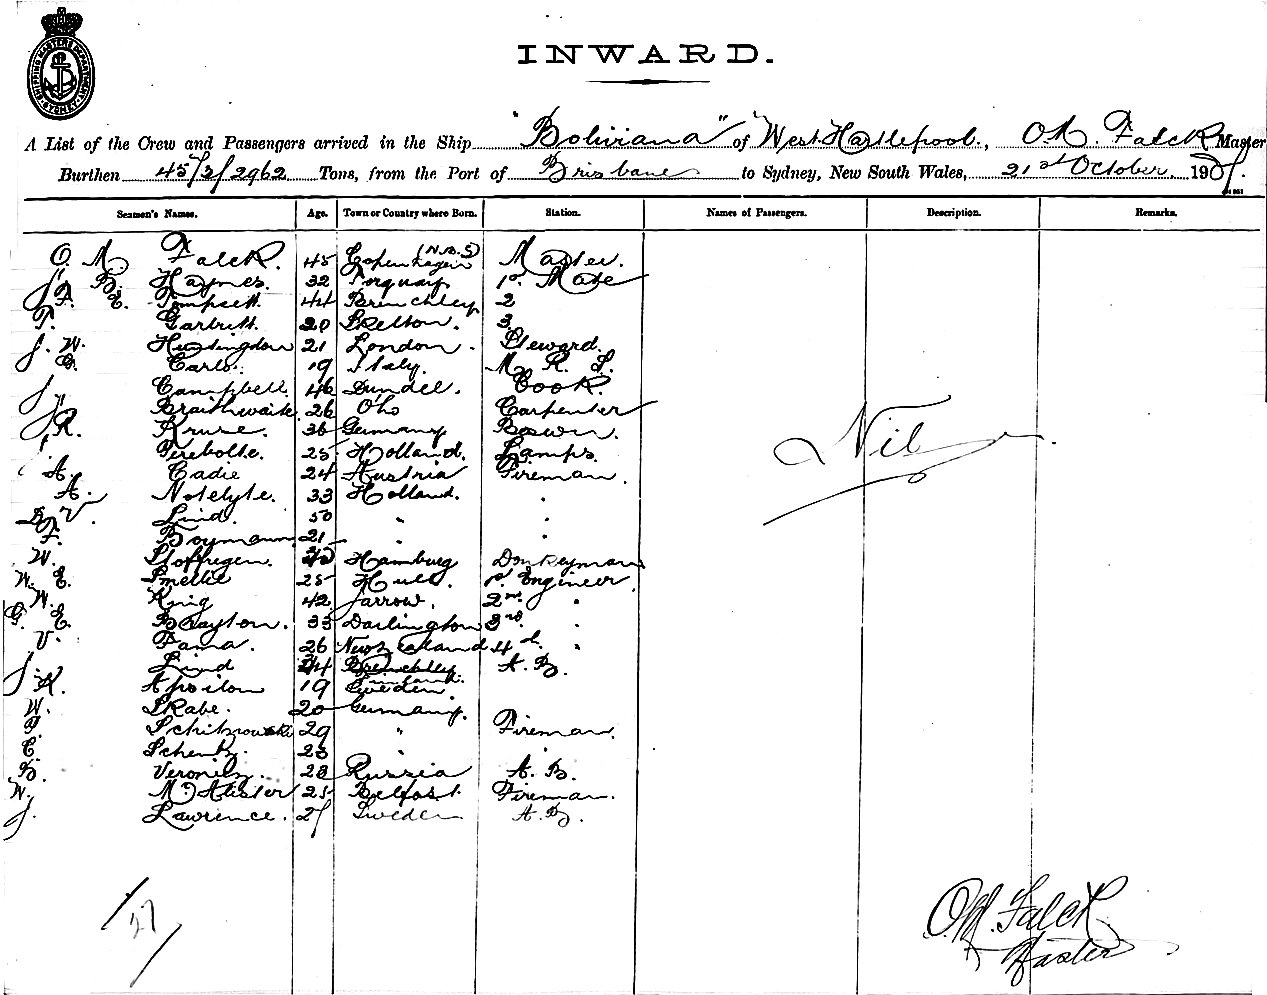 SHIPPING MASTERS DEPARTMENT SYDNEY
INWARD.
A List of the Crew and Passengers arrived in the Ship "Boliviana" of West Hartlepool, O.M. Falck Master
Burthen 4572/2962 Tons, from the Port of Brisbane to Sydney, New South Wales, 21st October 190
Seamen's Names. Age. Town or Country where Born. Station. Names of Passengers. Description. Remarks.
O. M. Falck. 45 Copenhagen (N.B.S) Master.
Haynes. 32 Torquay 1st Mate
Tompsett. 44 Brenchley 2
T. Garbutt. 20 Skelton. 3
J. W. Huntingdon 21 London. Steward.
G. Carlo. 19 Italy. M. R. S.
J. Campbell. 46 Dundee. Cook.
J. Braithwaite. 26 Oho Carpenter
R. Kruse. 36 Germany Boswn.
25 Holland. Lamps.
A. Cadie 24 Austria Fireman.
A. Notelyte. 33 Holland. "
Lind. 50 " "
F. Boymann 21 " "
W. Stoffregen. Hamburg Donkeyman
W. E. Smellie 25 Hull. 1st Engineer
W. King 42 Jarrow. 2nd "
G. E. Brayton. 33 Darlington 3rd "
V. Fama. 26 New Zealand 4th "
J. Lind 24 Brenchley Finland. A. B.
K. Apsilon 19 Sweden.
W. Skabe. 20 Germany.
P. 29 " Fireman.
C. Schenk. 23 " "
B. Veronitz. 28 Russia A. B.
W. McAlister 25 Belfast Fireman.
J. Lawrence. 27 Sweden A. B.
Nil
27
O.M. Falck
Master